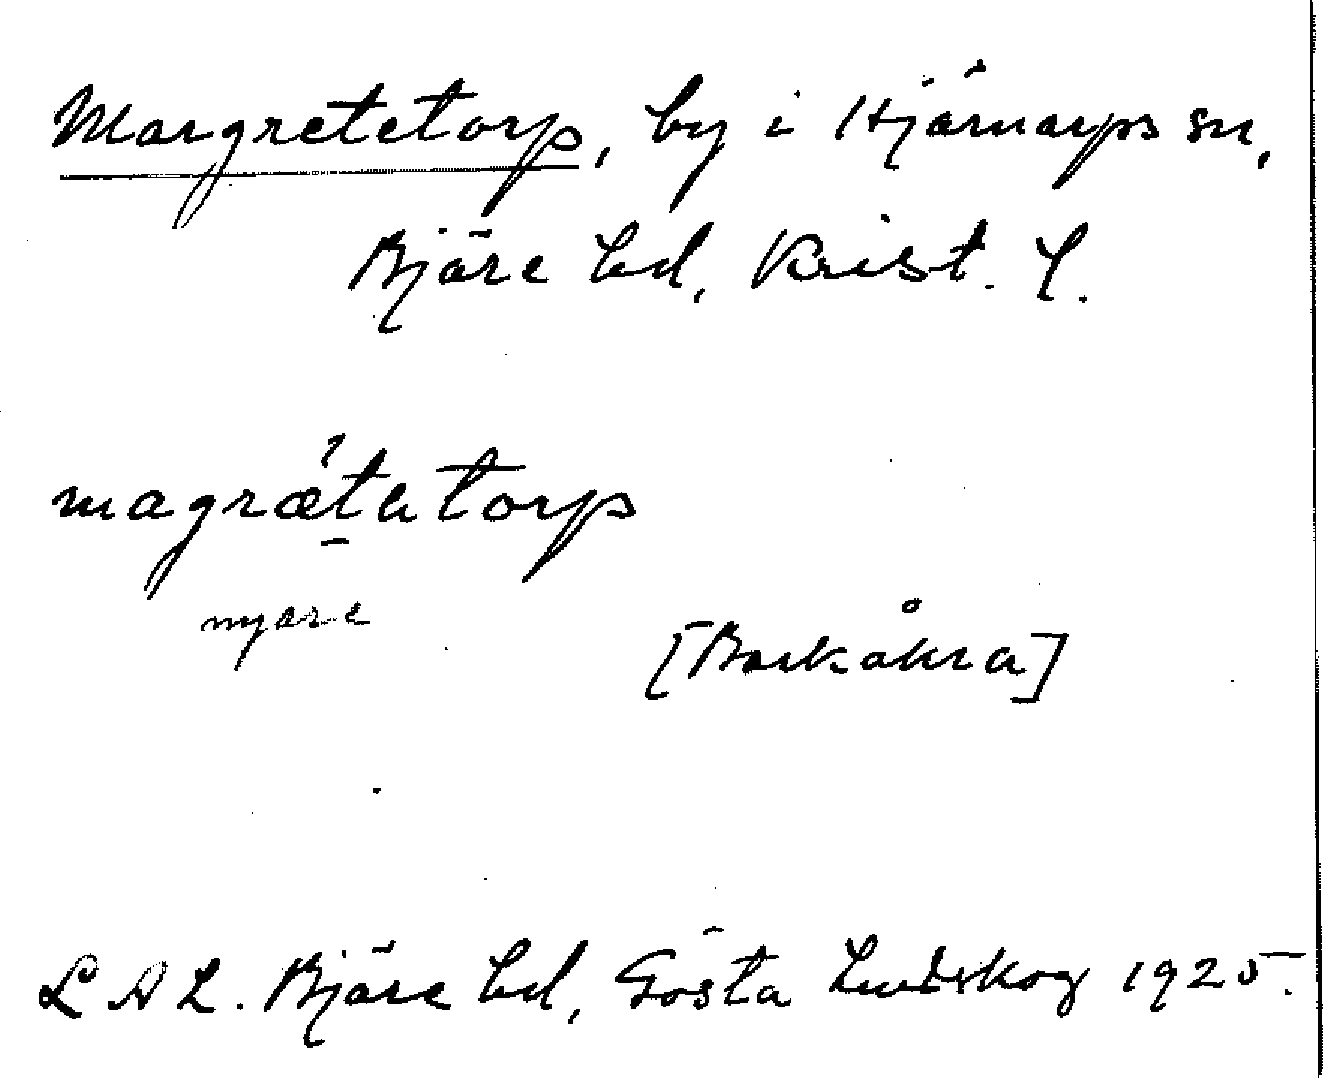 Margretetorp, by i Hjärnarps sn,
Bjäre hd, Krist. l.
magrǽtatorp
nyare
[Barkåkra]
L A L. Bjäre hd, Gösta 1925.